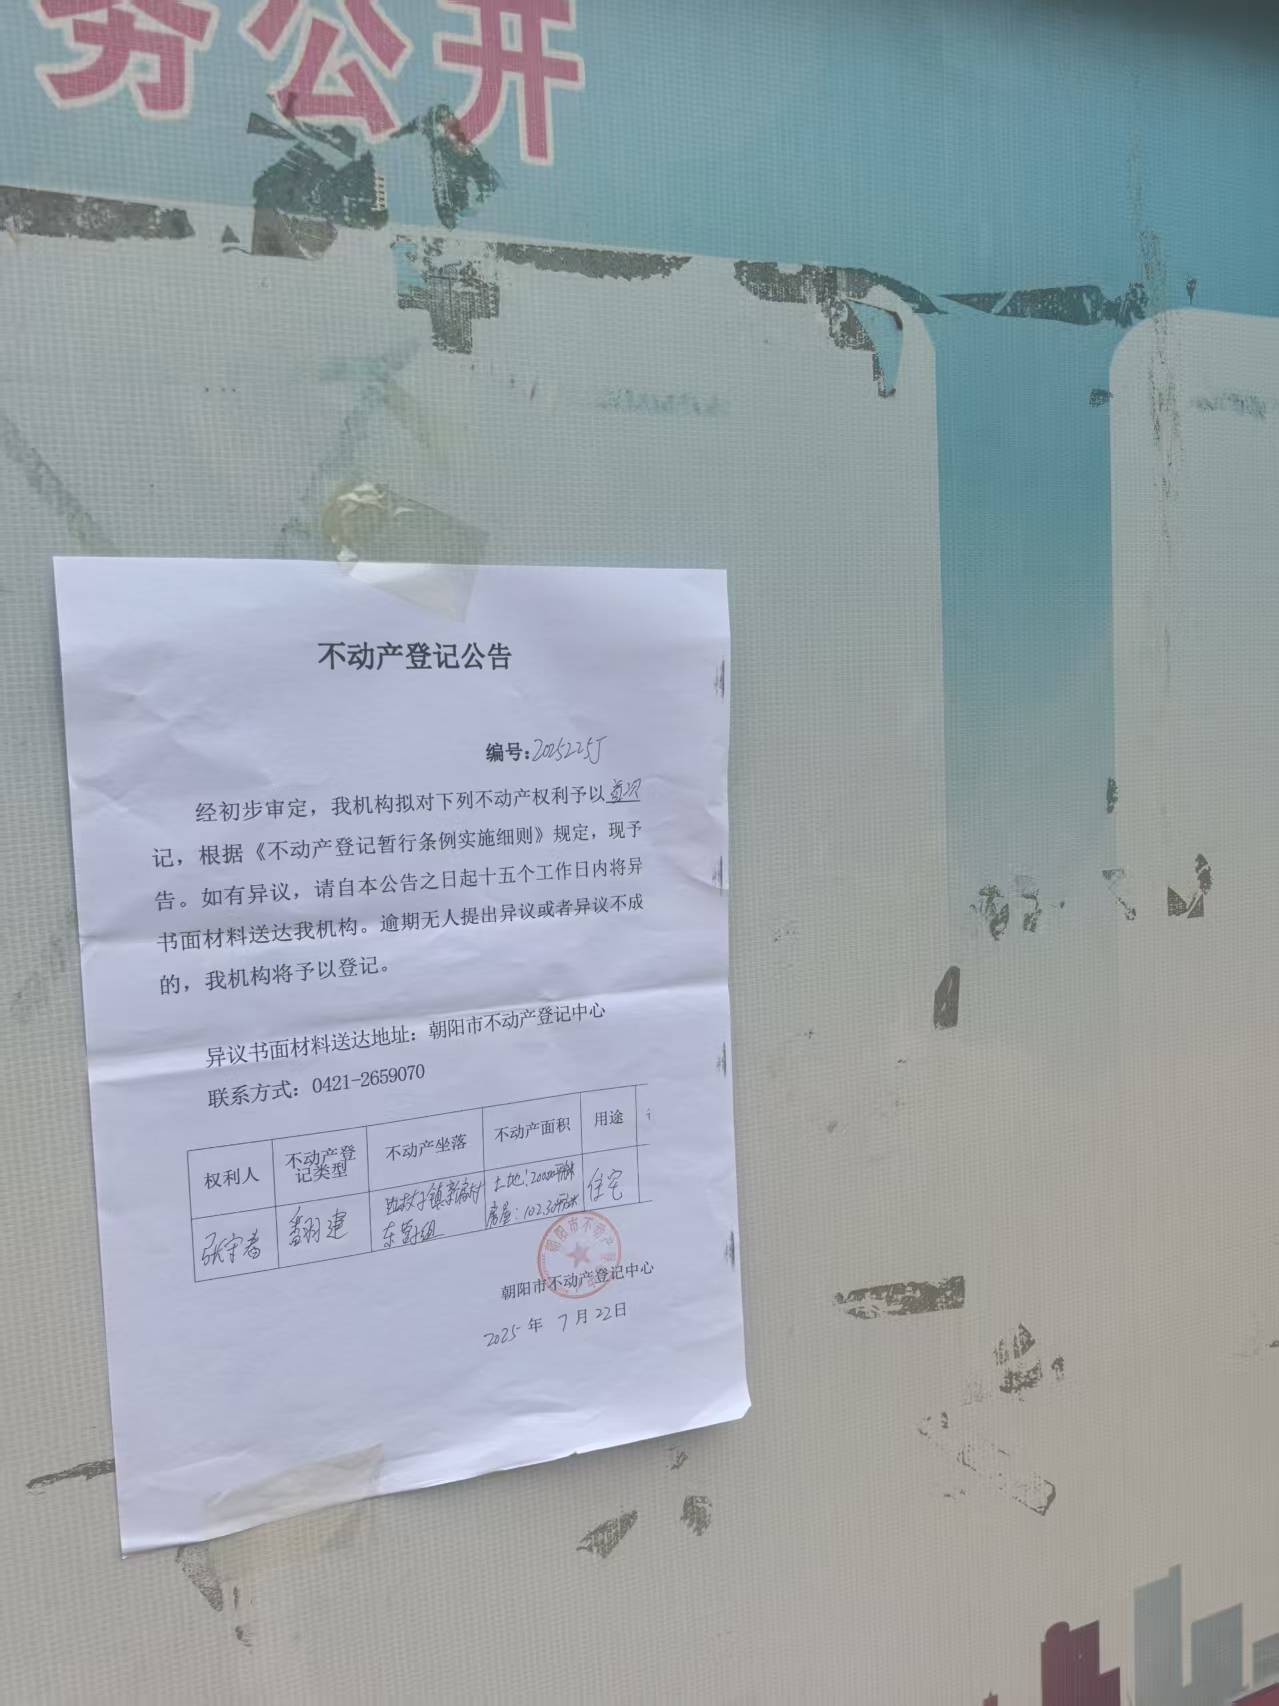 务公开
不动产登记公告
编号:2025225J
经初步审定，我机构拟对下列不动产权利予以首次
记，根据《不动产登记暂行条例实施细则》规定，现予
告。如有异议，请自本公告之日起十五个工作日内将异
书面材料送达我机构。逾期无人提出异议或者异议不成
的，我机构将予以登记。
异议书面材料送达地址：朝阳市不动产登记中心
联系方式：0421-2659070
权利人 不动产登记类型 不动产坐落 不动产面积 用途
翻建 土地:200.00平方米 住宅
房屋:102.30平方米
朝阳市不动产登记中心
2025年 7月22日